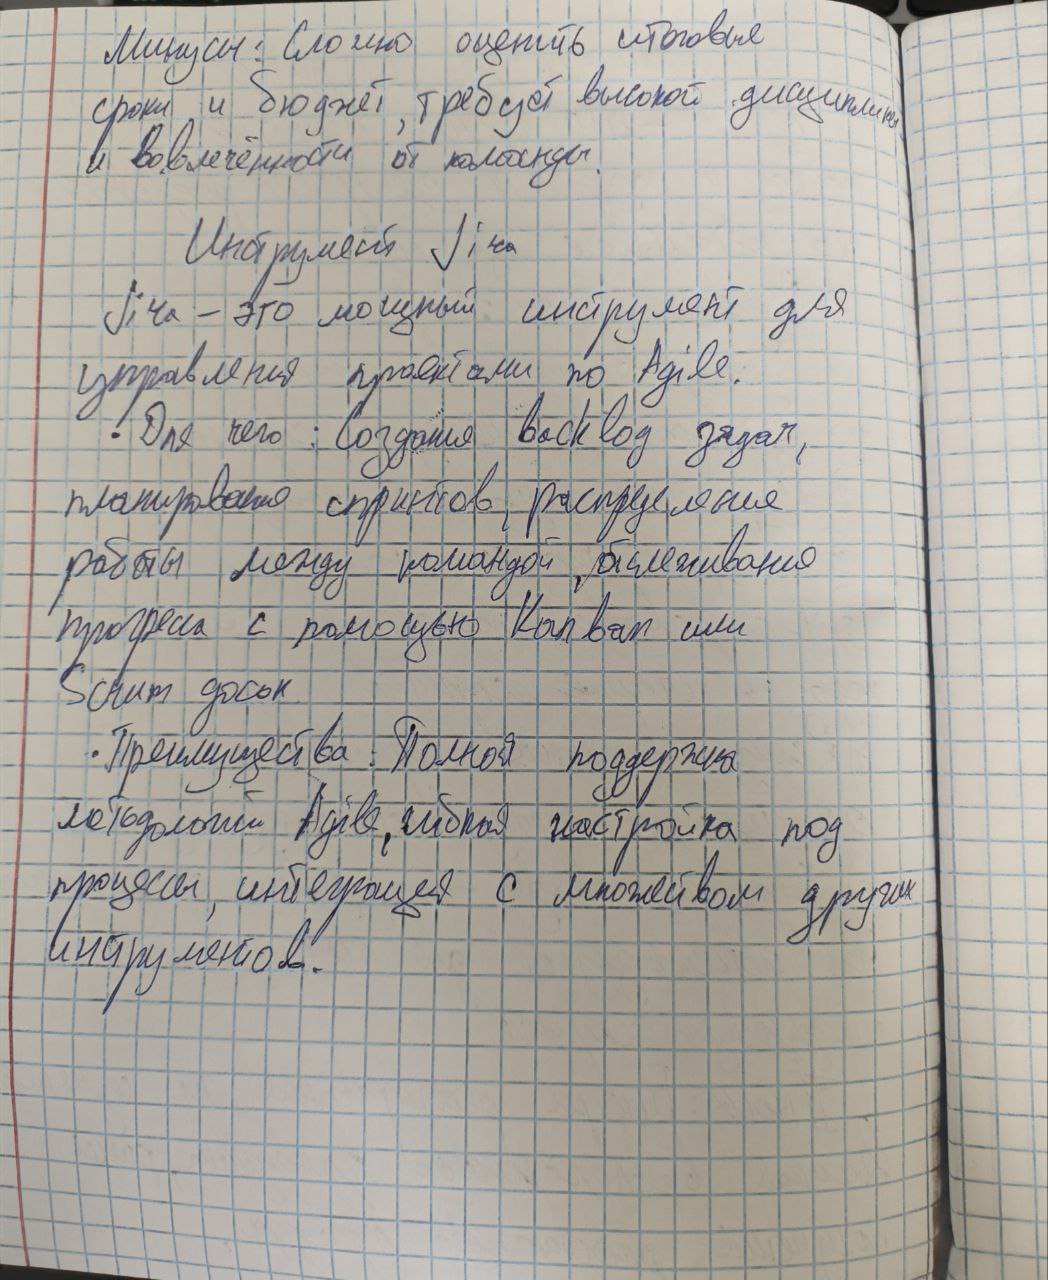 Минусы: Сложно оценить итоговые
сроки и бюджет, требует высокой дисциплины
и вовлечённости от команды.
Инструмент Jira
Jira – это мощный инструмент для
управления проектами по Agile.
• Для чего: Создания backlog задач,
планирования спринтов, распределения
работы между командой, отслеживания
прогресса с помощью Kanban или
Scrum досок
• Преимущества: Полная поддержка
методологий Agile, гибкая настройка под
процессы, интеграция с множеством других
инструментов.